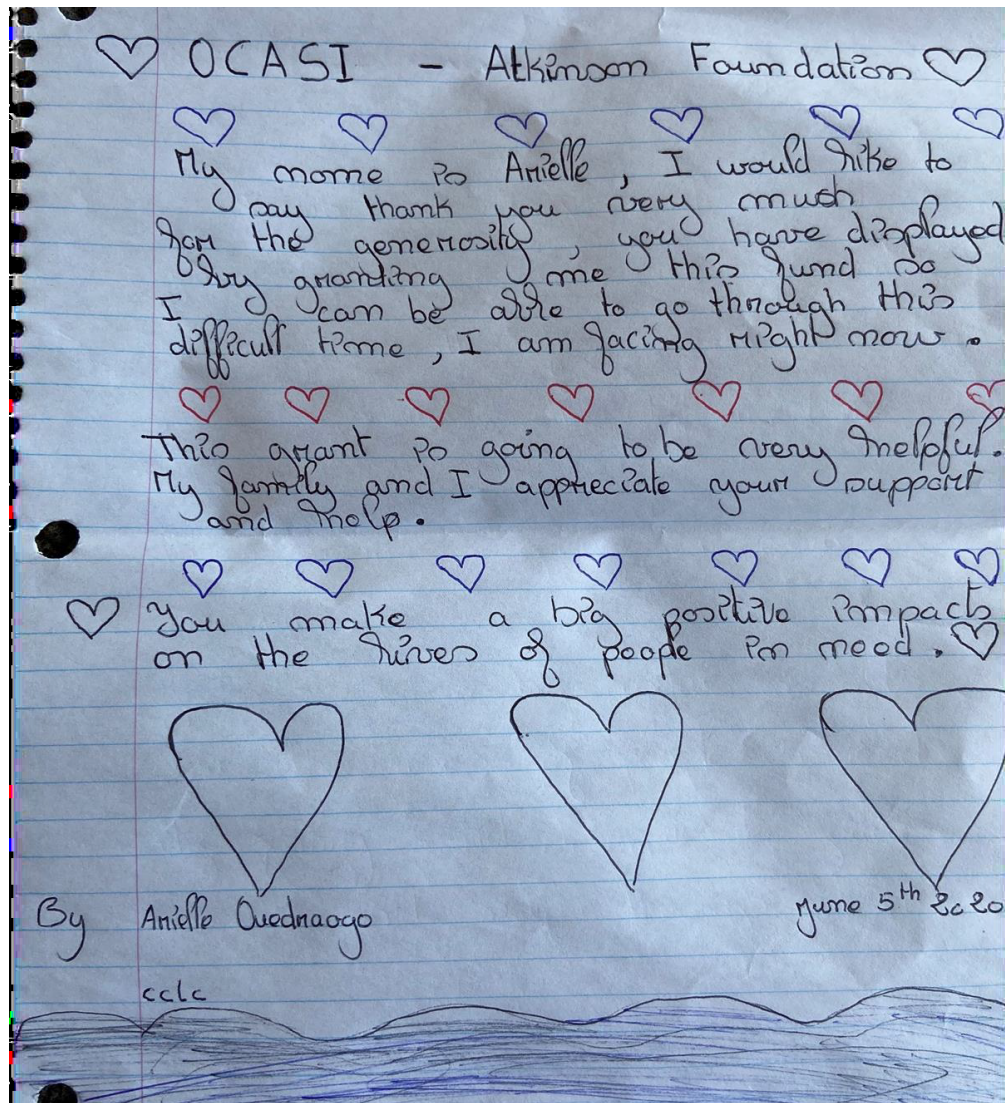 OCASI - Atkinson Foundation
My name is Arielle, I would like to
say thank you very much
for the generosity, you have displayed
by granting me this fund so
I can be able to go through this
difficult time, I am facing right now.
This grant is going to be very helpful.
My family and I appreciate your support
and help.
You make a big positive impacts
on the lives of people in need.
By Arielle Ouedraogo June 5th 2020
cclc